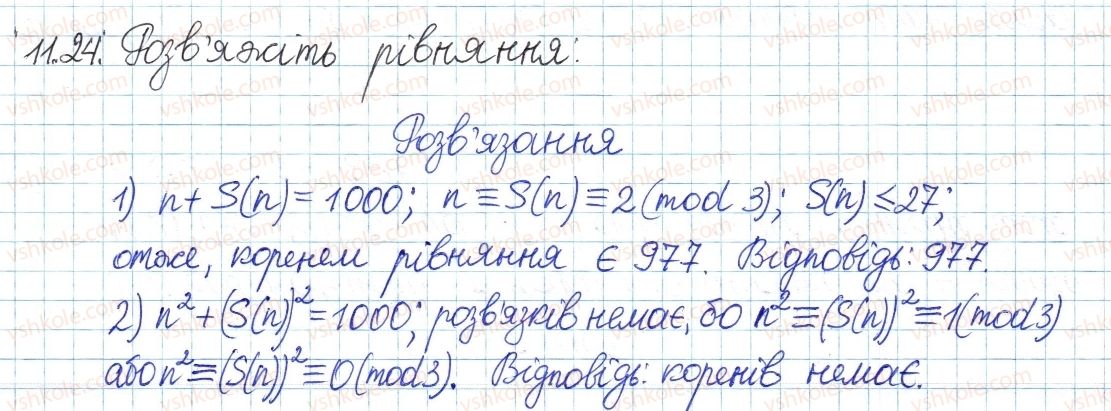 11.24. Розв'яжіть рівняння:
Розв'язання
1) n + S(n) = 1000; n ≡ S(n) ≡ 2 (mod 3); S(n) ≤ 27;
отже, коренем рівняння є 977. Відповідь: 977.
2) n² + (S(n))² = 1000; розв'язків немає, бо n² ≡ (S(n))² ≡ 1 (mod 3)
або n² ≡ (S(n))² ≡ 0 (mod 3). Відповідь: коренів немає.